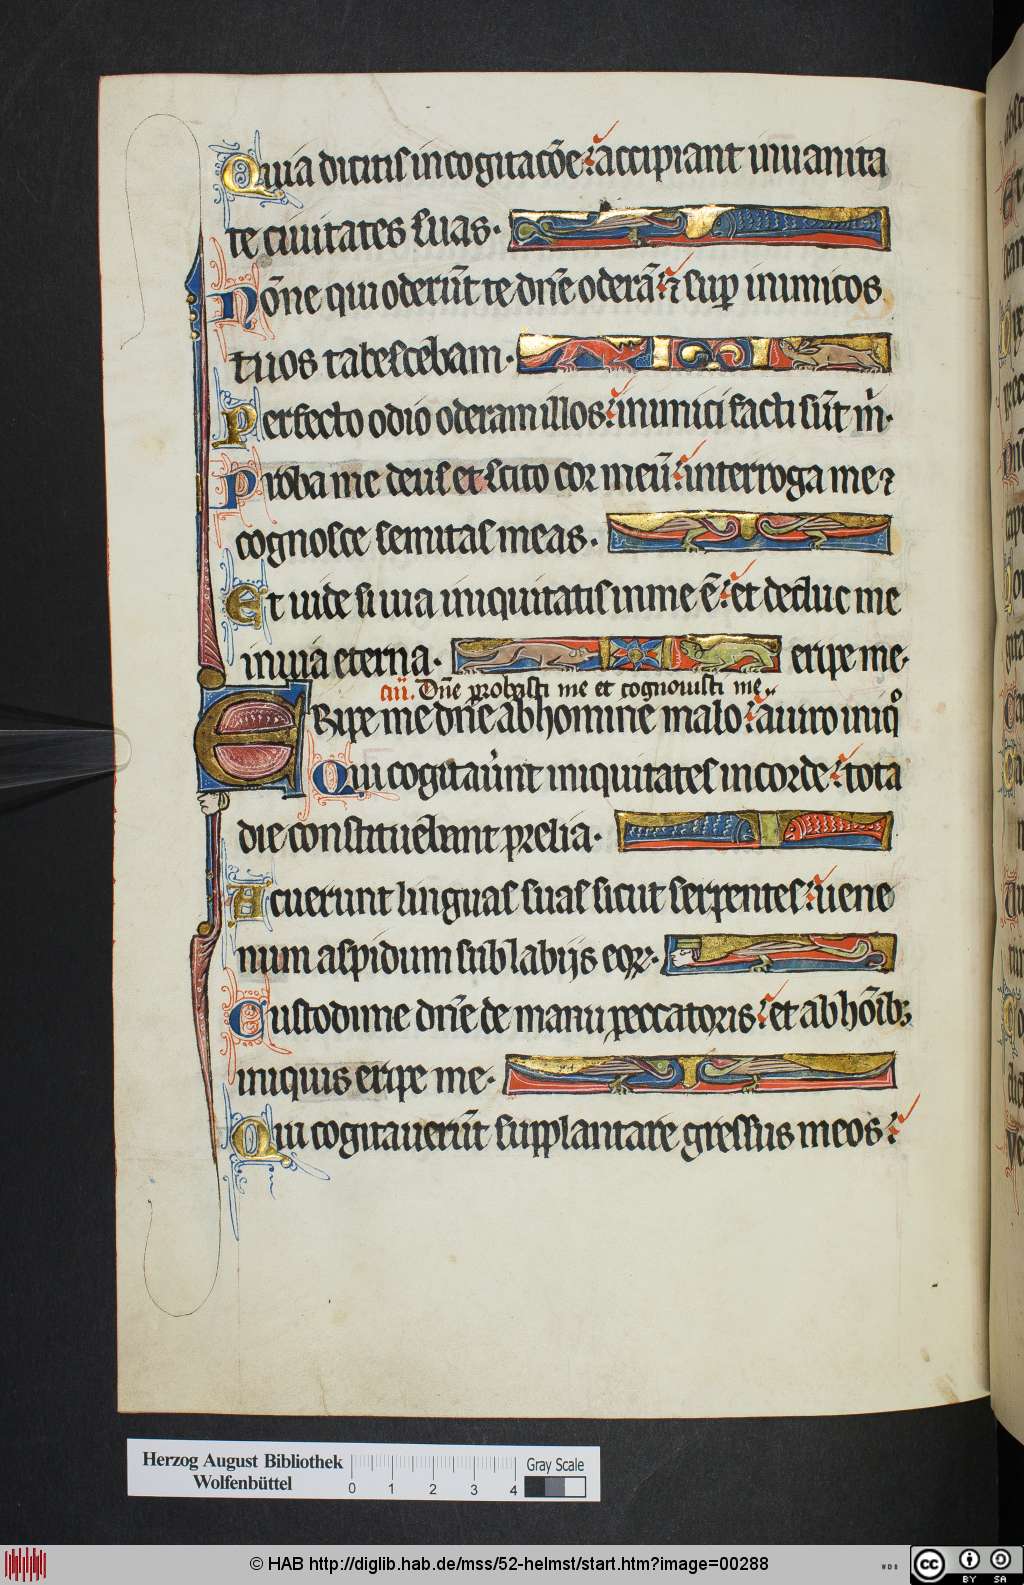 Quia dicitis in cogitacōe: accipiant in uanita
te ciuitates suas.
Nōne qui oderūt te dn̄e oderā: ⁊ suꝑ inimicos
tuos tabescebam.
Perfecto odio oderam illos: inimici facti sūt m̍.
Proba me deus et scito cor meū: interroga me ⁊
cognosce semitas meas.
Et uide si uia iniquitatis in me ē: et deduc me
in uia eterna. eripe me.
añ. Dn̄e probasti me et cognouisti me
ERipe me dn̄e ab homine malo: a uiro iniqͦ
Qui cogitaũnt iniquitates in corde: tota
die constituebant prelia.
Acuerunt linguas suas sicut serpentes: uene
num aspidum sub labijs eoꝝ.
Custodi me dn̄e de manu peccatoris: et ab hōib;
iniquis eripe me.
Qui cogitauerūt supplantare gressus meos:
Herzog August Bibliothek
Wolfenbüttel
0 1 2 3 4
Gray Scale
© HAB http://diglib.hab.de/mss/52-helmst/start.htm?image=00288
WDB
cc BY SA